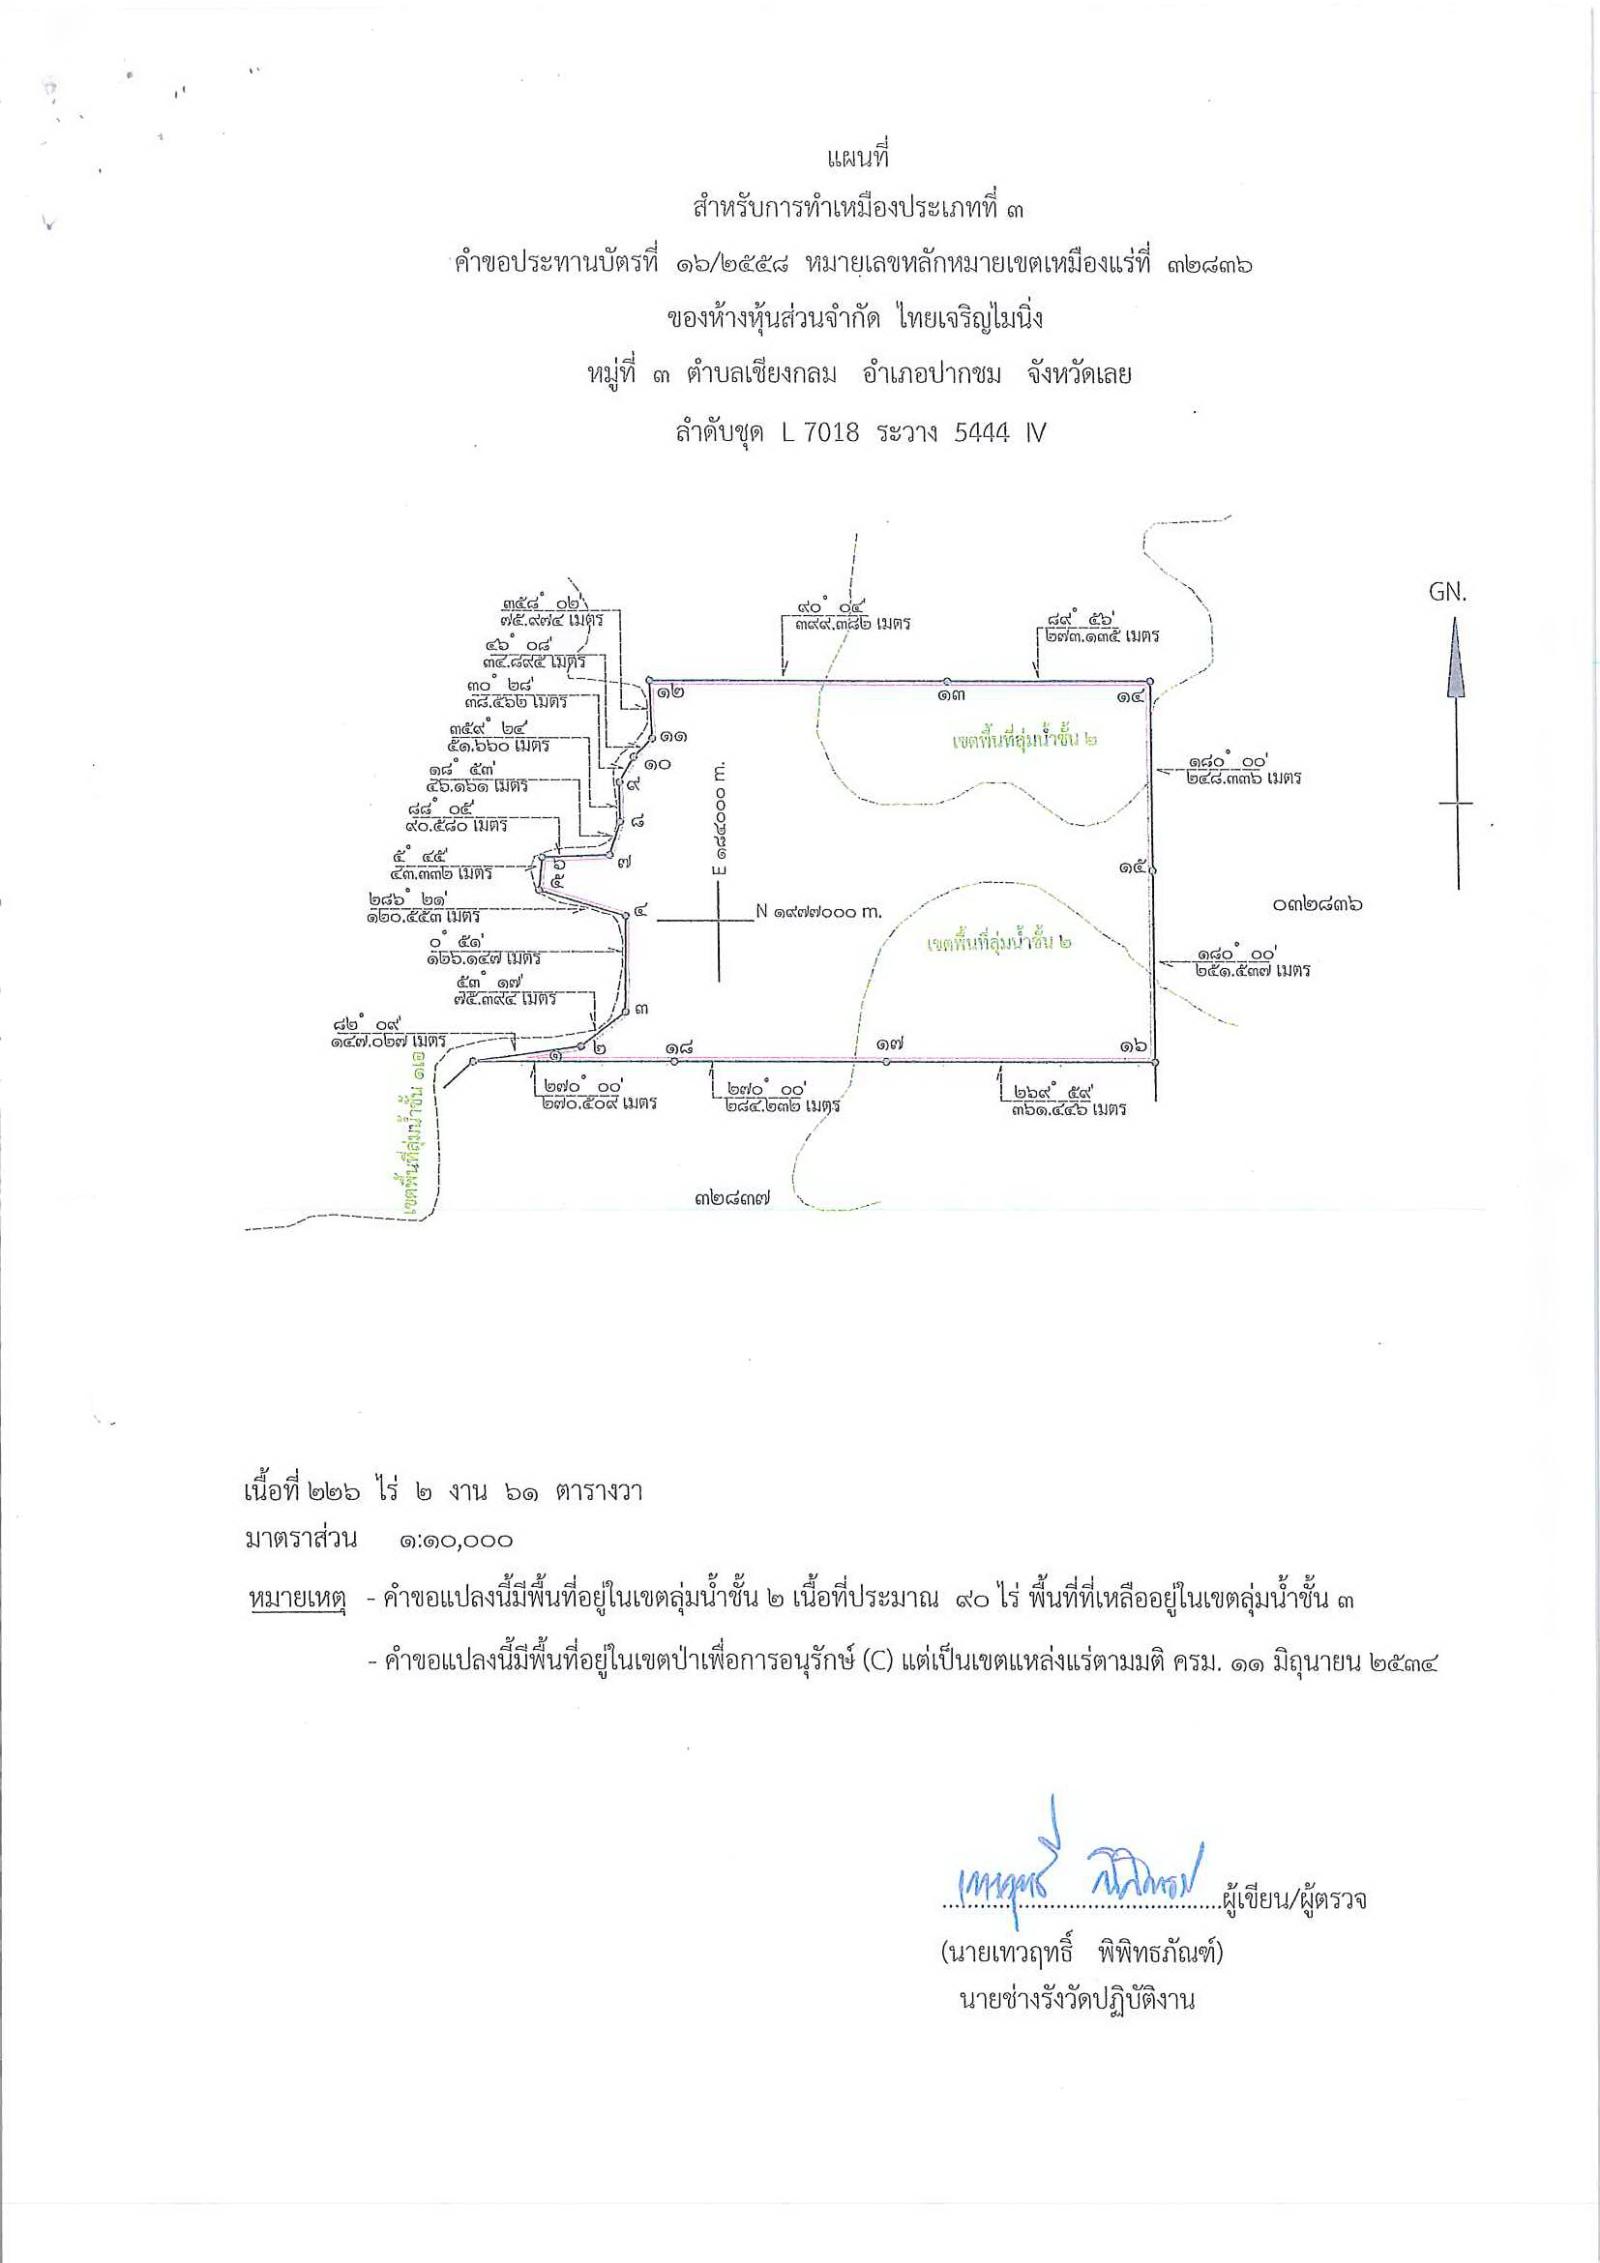 แผนที่
สำหรับการทำเหมืองประเภทที่ ๓
คำขอประทานบัตรที่ ๑๖/๒๕๕๘ หมายเลขหลักหมายเขตเหมืองแร่ที่ ๓๒๘๓๖
ของห้างหุ้นส่วนจำกัด ไทยเจริญไมนิ่ง
หมู่ที่ ๓ ตำบลเชียงกลม อำเภอปากชม จังหวัดเลย
ลำดับชุด L 7018 ระวาง 5444 IV
GN.
๓๕๘° ๐๒'
๗๕.๙๗๔ เมตร
๙๐° ๐๔'
๓๙๙.๓๘๒ เมตร
๘๙° ๕๖'
๒๗๓.๑๓๕ เมตร
๔๖° ๐๘'
๓๔.๘๙๕ เมตร
๓๐° ๒๘'
๓๘.๕๖๒ เมตร
๑๒
๑๓
๑๔
๓๕๙° ๒๔'
๕๑.๖๖๐ เมตร
๑๑
เขตพื้นที่ลุ่มน้ำชั้น ๒
๑๘° ๕๓'
๔๖.๑๖๑ เมตร
๑๐
๑๘๐° ๐๐'
๒๔๘.๓๓๖ เมตร
๙
๘๘° ๐๕'
๙๐.๕๘๐ เมตร
๘
E ๑๔๒๐๐๐ m.
๕° ๔๕'
๔๓.๓๓๒ เมตร
๖
๗
๑๕
๕
๒๘๖° ๒๑'
๑๒๐.๕๕๓ เมตร
๔
N ๑๙๗๗๐๐๐ m.
๐๓๒๘๓๖
๐° ๕๑'
๑๒๖.๑๔๗ เมตร
เขตพื้นที่ลุ่มน้ำชั้น ๒
๑๘๐° ๐๐'
๒๕๑.๕๓๗ เมตร
๕๓° ๑๗'
๗๕.๓๙๔ เมตร
๓
๘๒° ๐๙'
๑๔๗.๐๒๗ เมตร
๑
๒
๑๘
๑๗
๑๖
๒๗๐° ๐๐'
๒๗๐.๕๐๙ เมตร
๒๗๐° ๐๐'
๒๘๔.๒๓๒ เมตร
๒๖๙° ๕๙'
๓๖๑.๔๔๖ เมตร
๓๒๘๓๗
เนื้อที่ ๒๒๖ ไร่ ๒ งาน ๖๑ ตารางวา
มาตราส่วน ๑:๑๐,๐๐๐
หมายเหตุ - คำขอแปลงนี้มีพื้นที่อยู่ในเขตลุ่มน้ำชั้น ๒ เนื้อที่ประมาณ ๙๐ ไร่ พื้นที่ที่เหลืออยู่ในเขตลุ่มน้ำชั้น ๓
- คำขอแปลงนี้มีพื้นที่อยู่ในเขตป่าเพื่อการอนุรักษ์ (C) แต่เป็นเขตแหล่งแร่ตามมติ ครม. ๑๑ มิถุนายน ๒๕๓๔
ผู้เขียน/ผู้ตรวจ
(นายเทวฤทธิ์ พิพิทธภัณฑ์)
นายช่างรังวัดปฏิบัติงาน